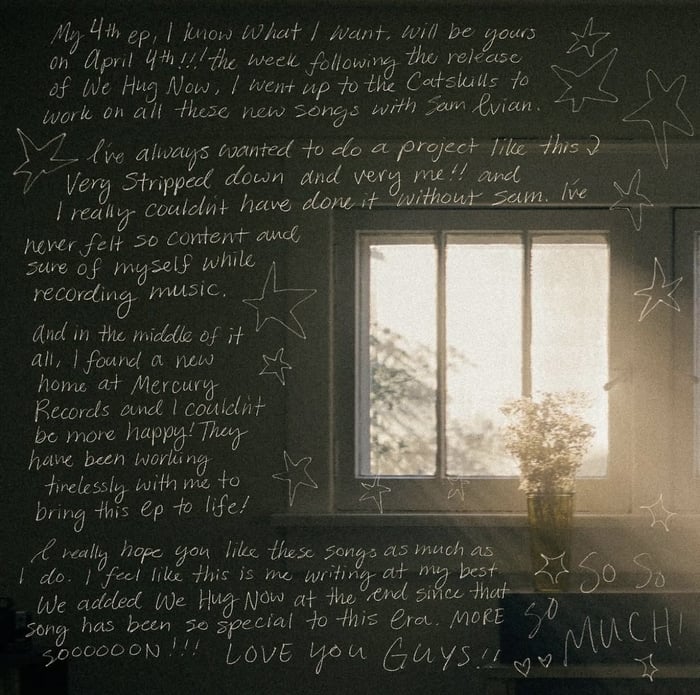 My 4th ep, I know what I want, will be yours
on April 4th!!! the week following the release
of We Hug Now, I went up to the Catskills to
work on all these new songs with Sam Evian.
I've always wanted to do a project like this
Very Stripped down and very me!! and
I really couldn't have done it without Sam. I've
never felt so content and
sure of myself while
recording music.
And in the middle of it
all, I found a new
home at Mercury
Records and I couldn't
be more happy! They
have been working
tirelessly with me to
bring this ep to life!
I really hope you like these songs as much as
I do. I feel like this is me writing at my best
We added We Hug Now at the end since that
song has been so special to this era. MORE
SOOOOOON!!! LOVE YOU GUYS!!
SO SO
SO
MUCH!